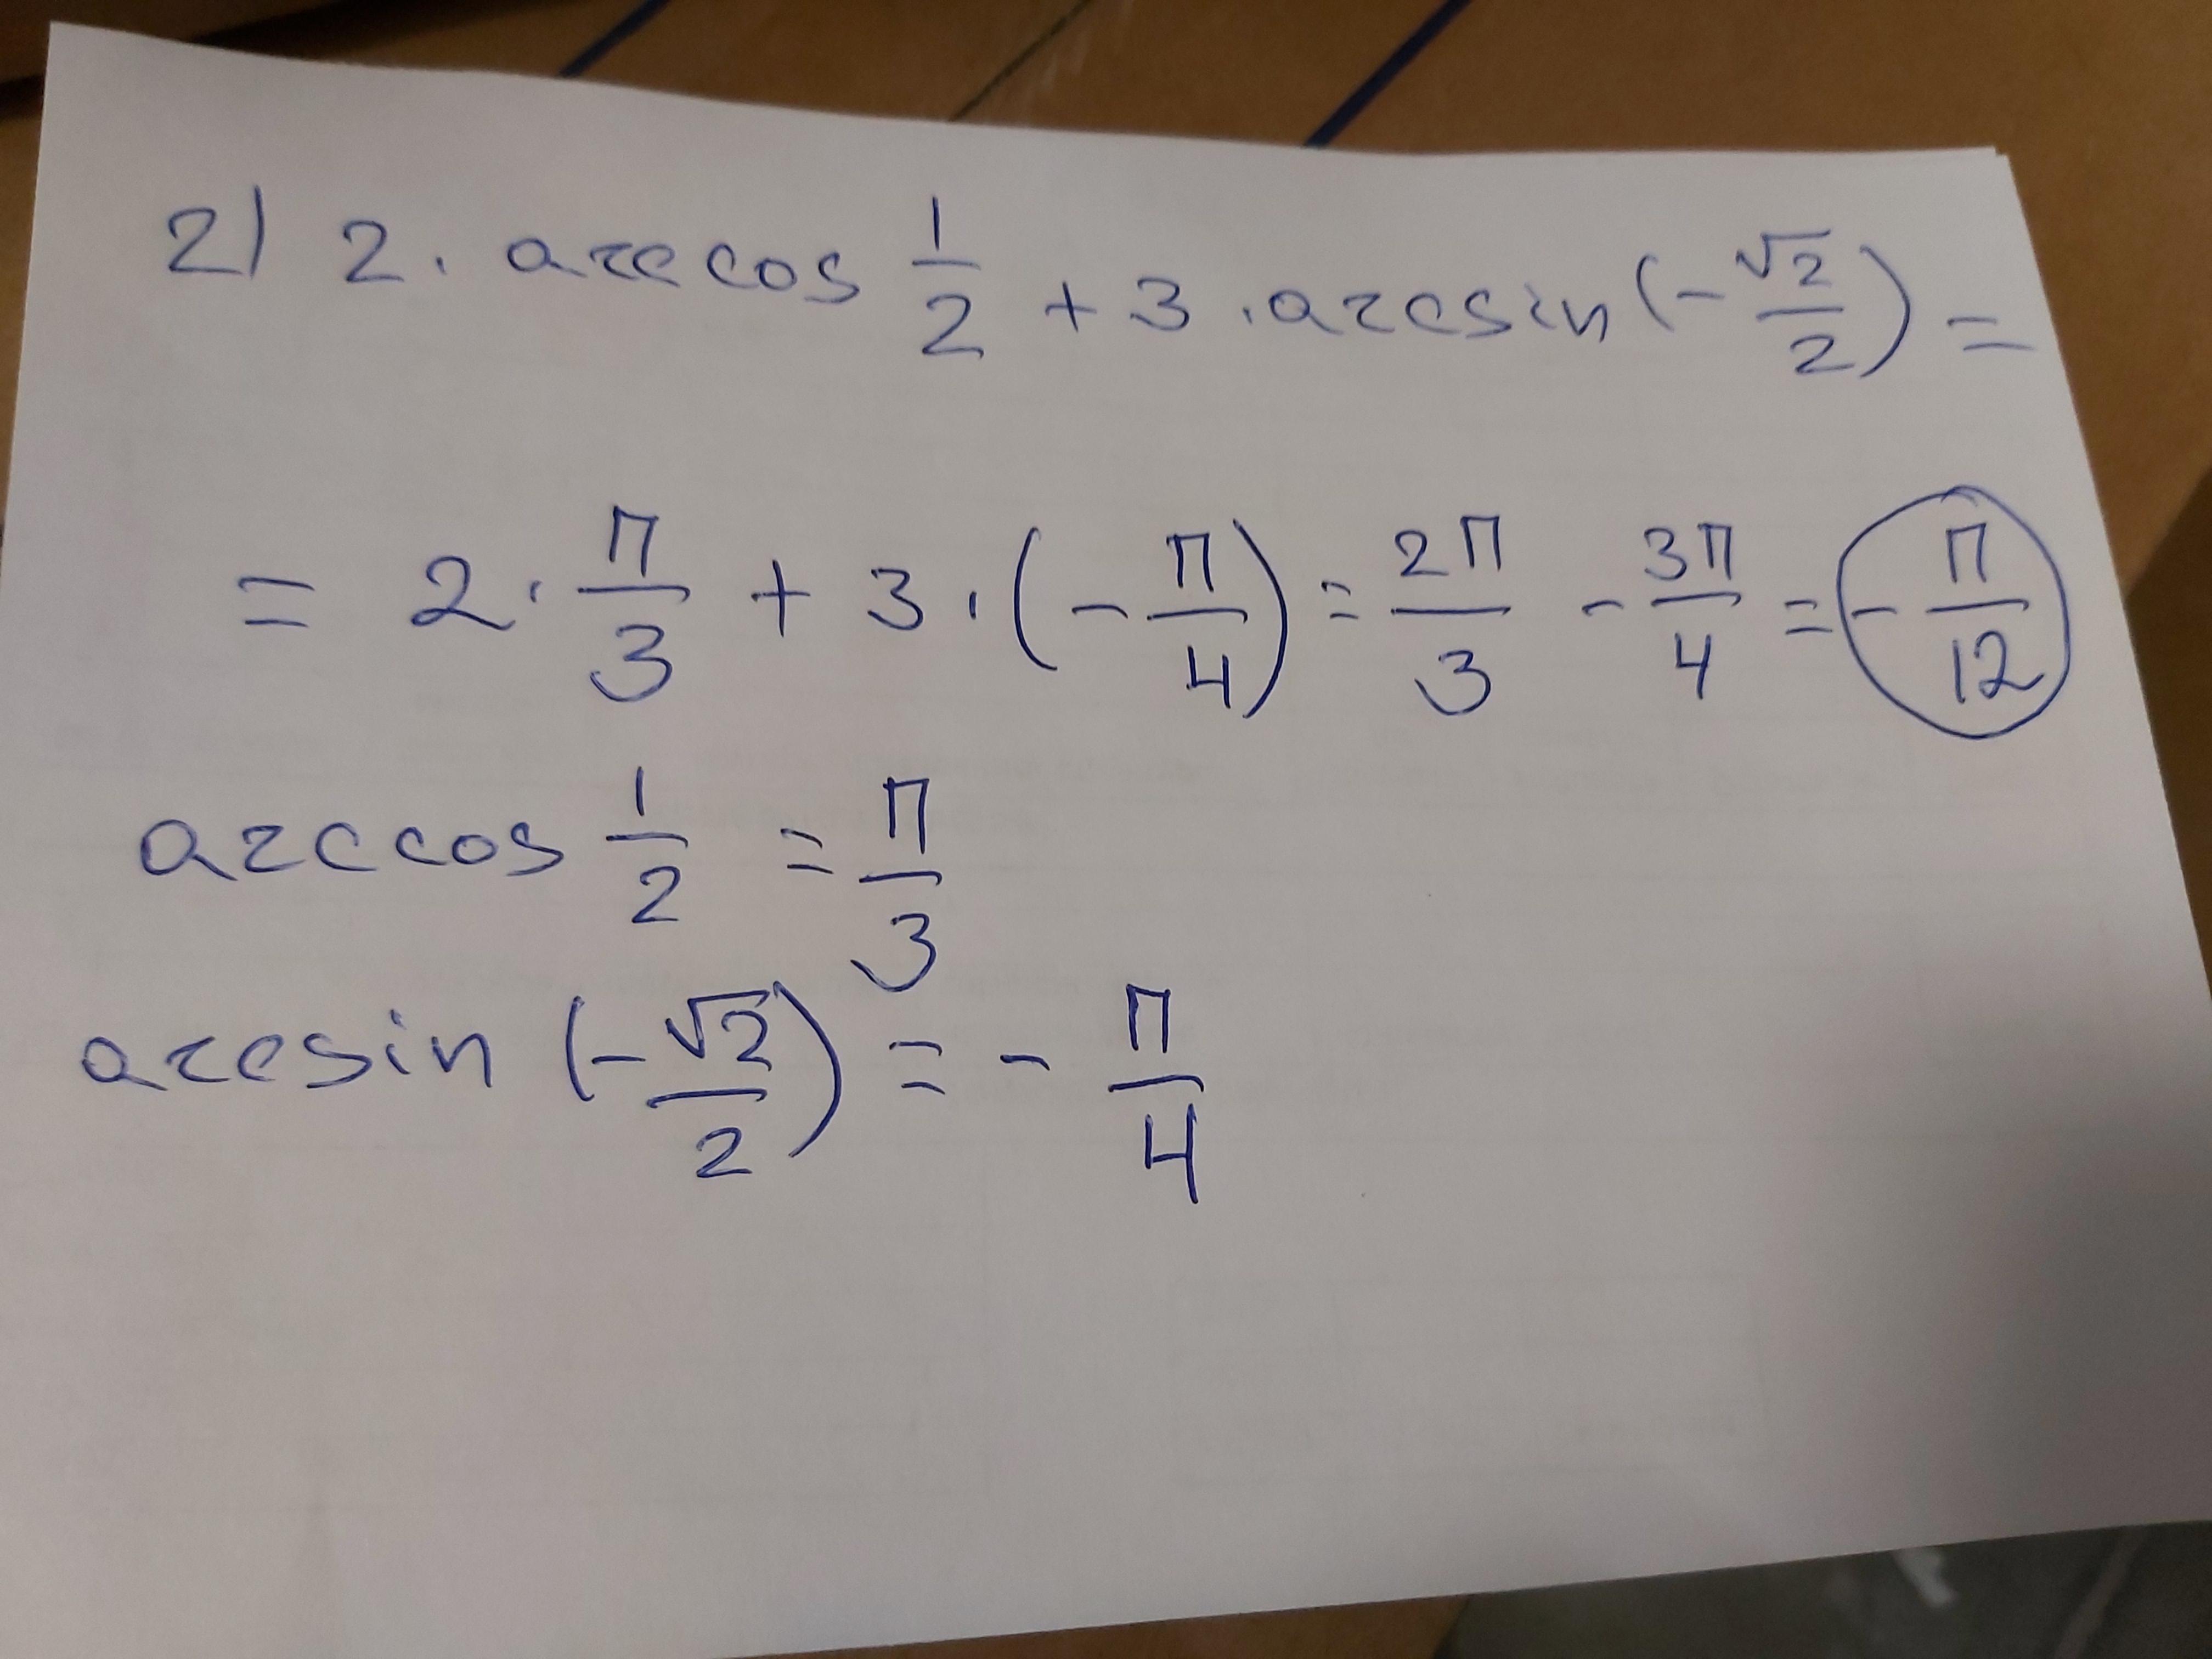 2) 2 · arccos 1/2 + 3 · arcsin(-√2/2) =
= 2 · π/3 + 3 · (-π/4) = 2π/3 - 3π/4 = -π/12
arccos 1/2 = π/3
arcsin (-√2/2) = - π/4